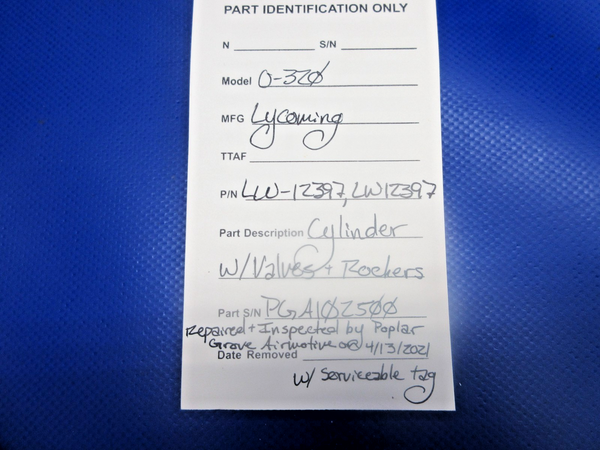 PART IDENTIFICATION ONLY
N S/N
Model O-320
MFG Lycoming
TTAF
P/N LW-12397, LW12397
Part Description Cylinder
W/Valves + Rockers
Part S/N PGA102500
Repaired + Inspected by Poplar
Grove Airmotive on 4/13/2021
Date Removed
w/ Serviceable tag